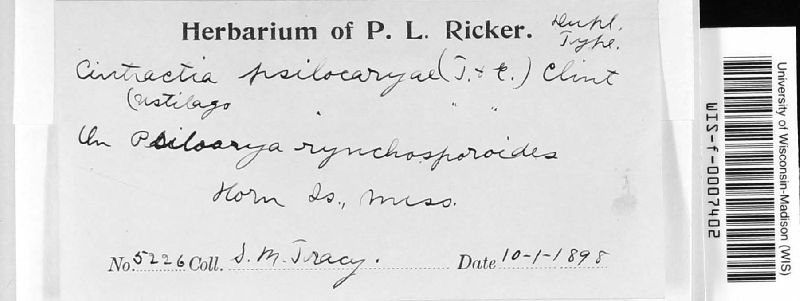 Herbarium of P. L. Ricker.
Dupl.
Type.
Cintractia psilocaryae (T. & E.) Clint
(Ustilago " "
On Psilocarya rynchosporoides
Horn Is., Miss.
No. 5226 Coll. S. M. Tracy. Date 10-1-1898
University of Wisconsin-Madison (WIS)
WIS-f-0007402